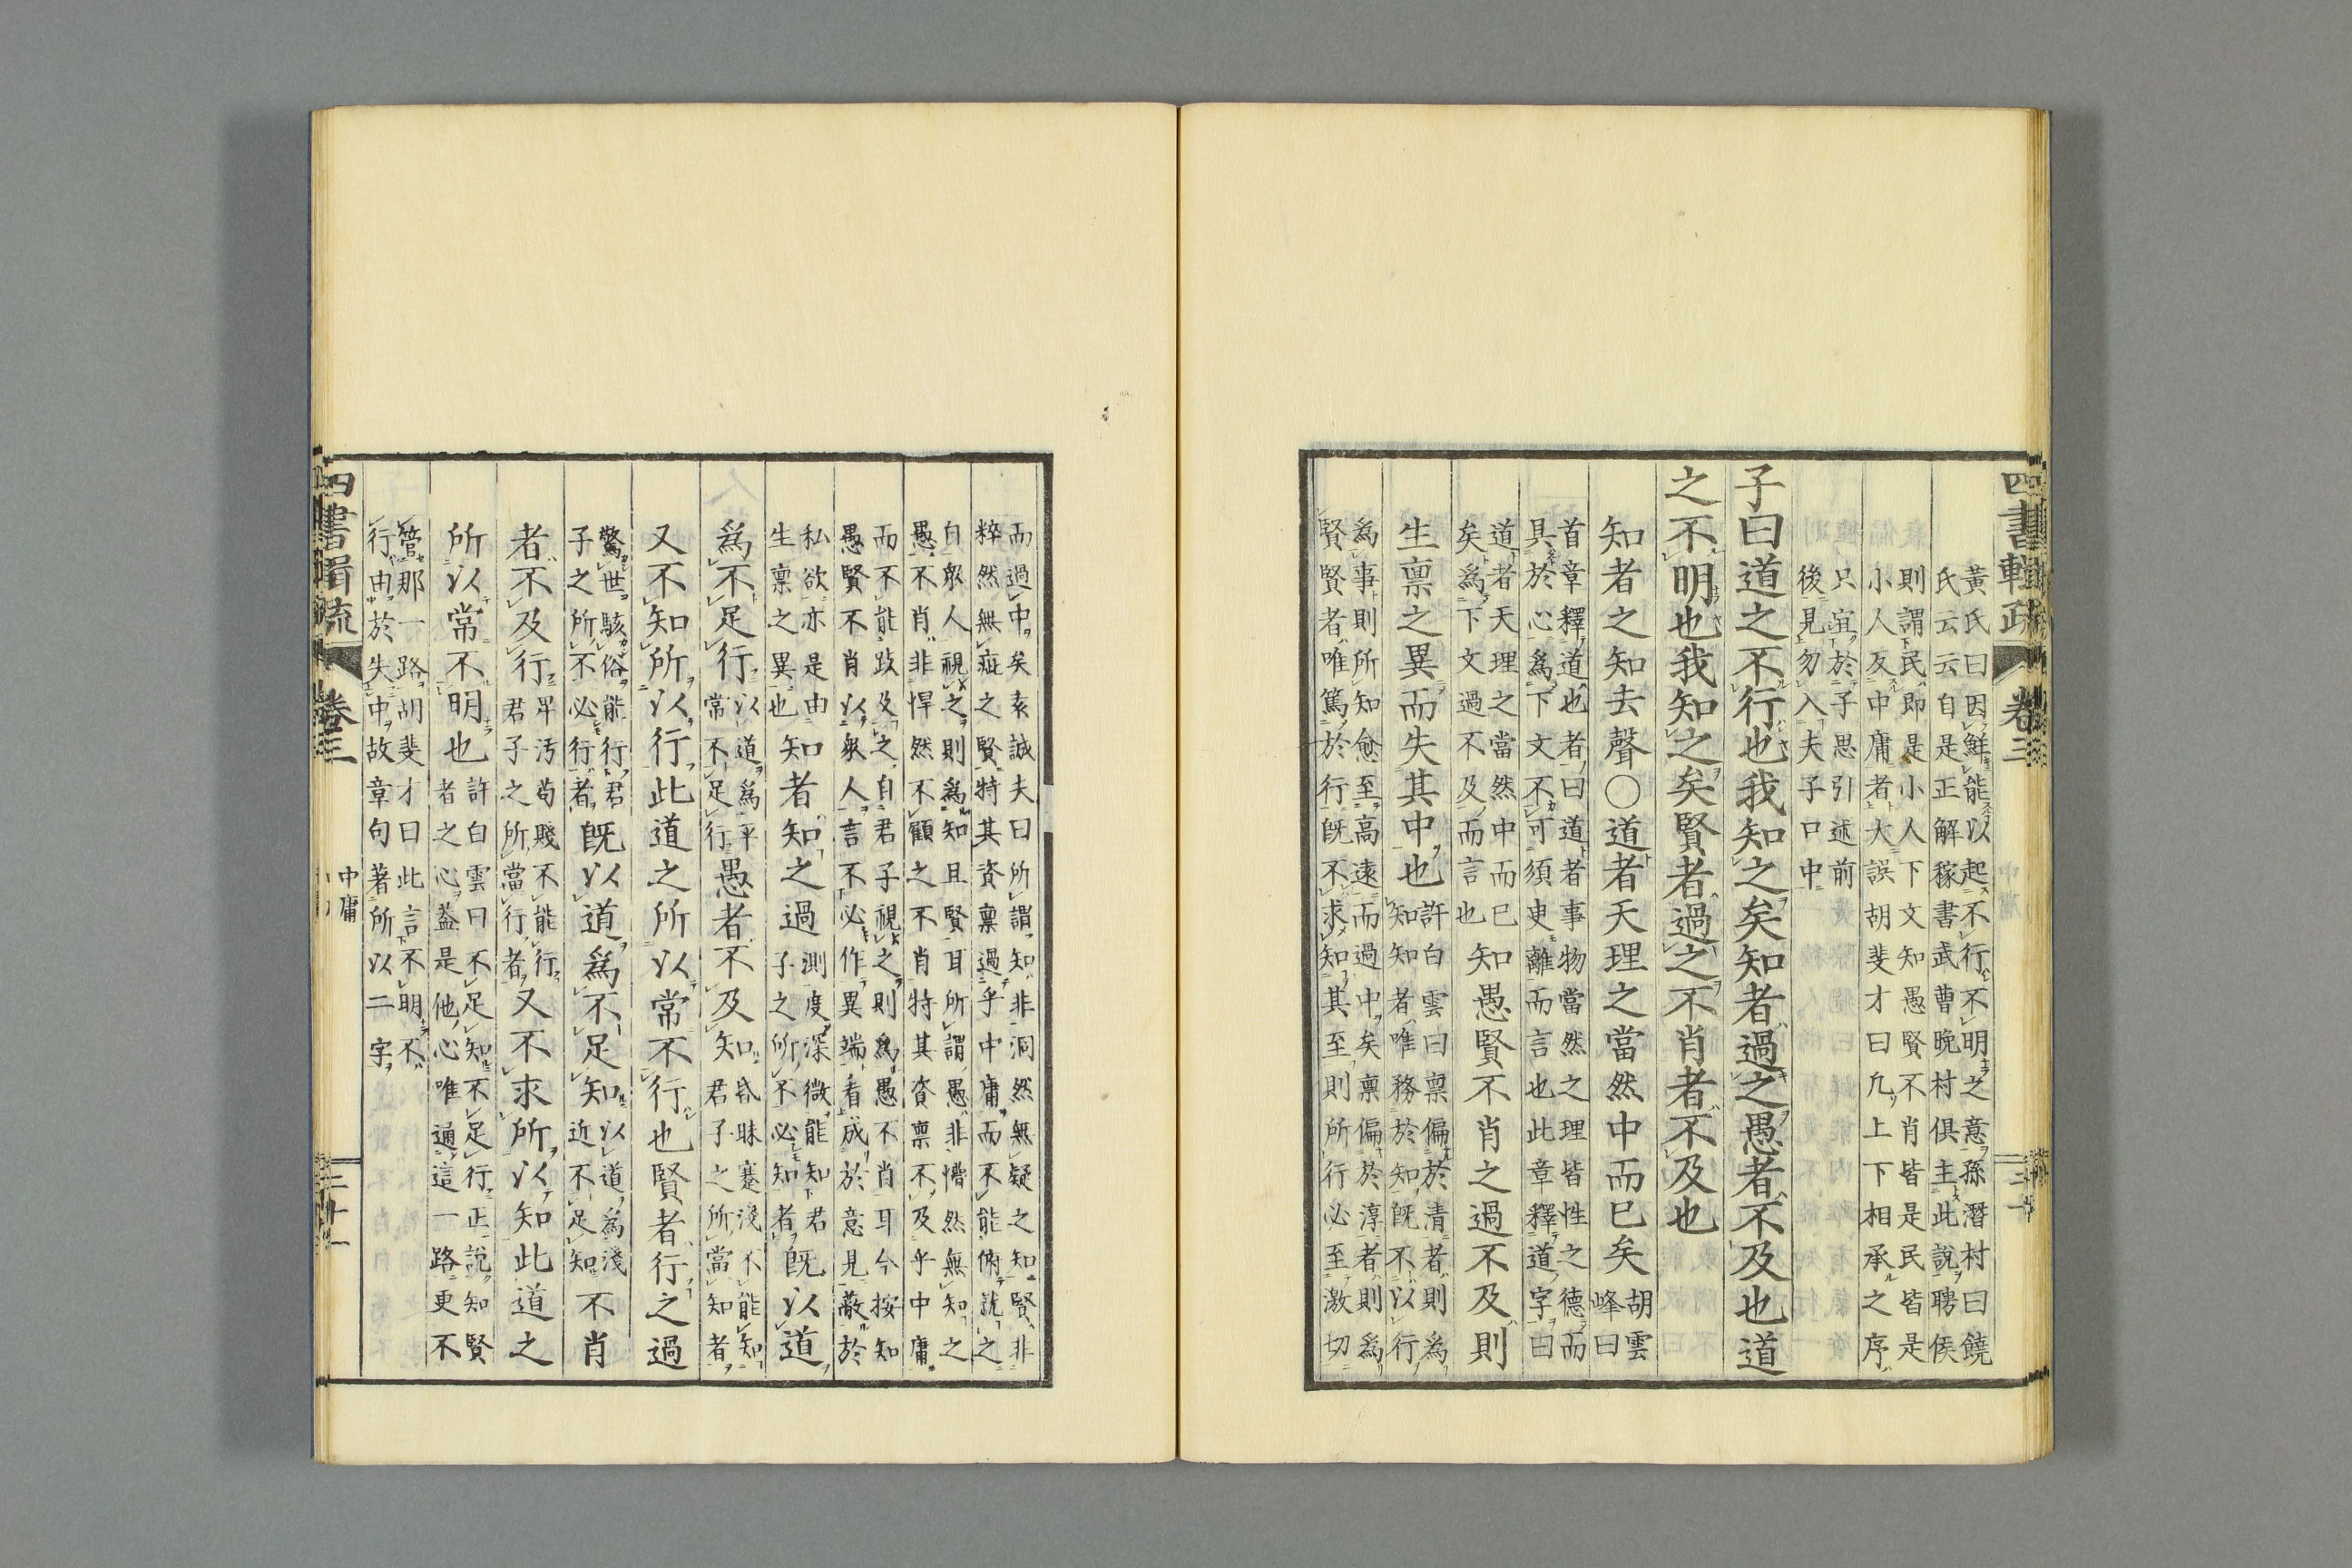 四書輯疏
卷三
三十一
黃氏曰因鮮能以起不行不明之意孫潛村曰饒
氏云云自是正解稼書武曹晚村俱主此說聘侯
則謂民即是小人下文知愚賢不肖皆是民皆是
小人反中庸者大誤胡斐才曰凡上下相承之序
只宜於子思引述前
後見勿入夫子口中
子曰道之不行也我知之矣知者過之愚者不及也道
之不明也我知之矣賢者過之不肖者不及也
知者之知去聲〇道者天理之當然中而已矣
胡雲
峰曰
首章釋道也者曰道者事物當然之理皆性之德而
具於心為下文不可須臾離而言也此章釋道字曰
道者天理之當然中而已
矣為下文過不及而言也
知愚賢不肖之過不及則
生禀之異而失其中也
許白雲曰禀偏於清者則為
知知者唯務於知既不以行
為事則所知愈至高遠而過中矣禀偏於淳者則為
賢賢者唯篤於行既不求知其至則所行必至激切
而過中矣袁誠夫曰所謂知非洞然無疑之知賢非
粹然無疵之賢特其資禀過乎中庸而不能俯就之
自衆人視之則為知且賢耳所謂愚非懵然無知之
愚不肖非悍然不顧之不肖特其資禀不及乎中庸
而不能跂及之自君子視之則為愚不肖耳今按知
愚賢不肖以衆人言不必作異端看成於意見蔽於
私欲亦是由
生禀之異也
知者知之過
測度深微能知君
子之所不必知者
既以道
為不足行
以道為平
常不足行
愚者不及知
昏昧蹇淺不能知
君子之所當知者
又不知所以行此道之所以常不行也賢者行之過
驚世駭俗能行君
子之所不必行者
既以道為不足知
以道為淺
近不足知
不肖
者不及行
卑汚苟賤不能行
君子之所當行者
又不求所以知此道之
所以常不明也
許白雲曰不足知不足行正說知賢
者之心蓋是他心唯通這一路更不
管那一路胡斐才曰此言不明不
行由於失中故章句著所以二字
四書輯疏
卷三
中庸
三十一